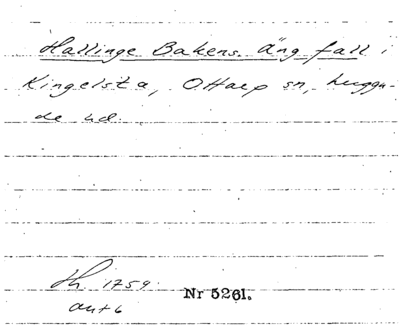 Hallinge Bakens Äng fall i
Kingelsta, Ottarp sn, Luggu-
de hd.
Hh. 1759.
akt 6
Nr 5261.